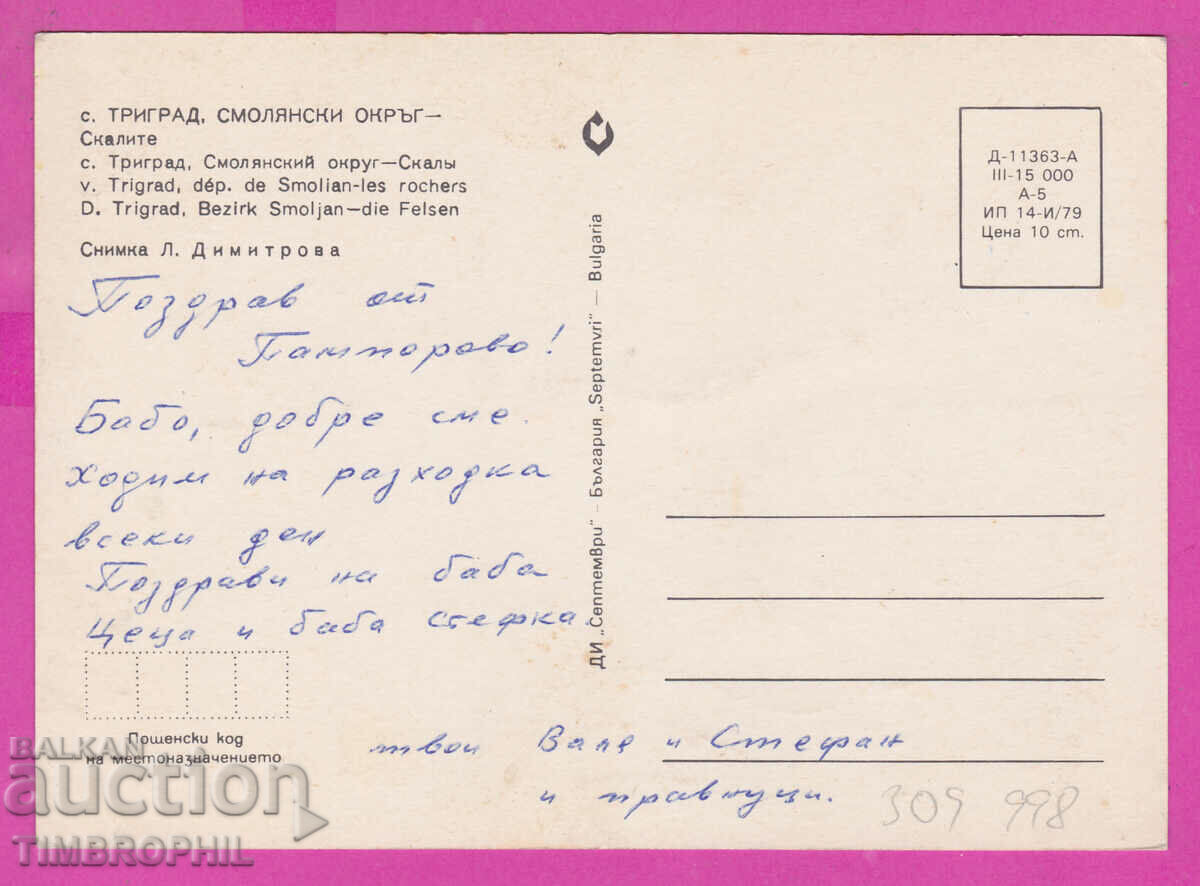 с. ТРИГРАД, СМОЛЯНСКИ ОКРЪГ—
Скалите
с. Триград, Смолянский округ—Скалы
v. Trigrad, dép. de Smolian-les rochers
D. Trigrad, Bezirk Smoljan—die Felsen
Снимка Л. Димитрова
Поздрав от
Пампорово!
Бабо, добре сме.
Ходим на разходка
всеки ден
Поздрави на баба
Цеца и баба Стефка.
Пощенски код
на местоназначението
твои Валя и Стефан
и правнуци.
ДИ „Септември" - България „Septemvri" — Bulgaria
Д-11363-А
III-15 000
А-5
ИП 14-И/79
Цена 10 ст.
309 998
BALKAN
auction
TIMBROPHIL